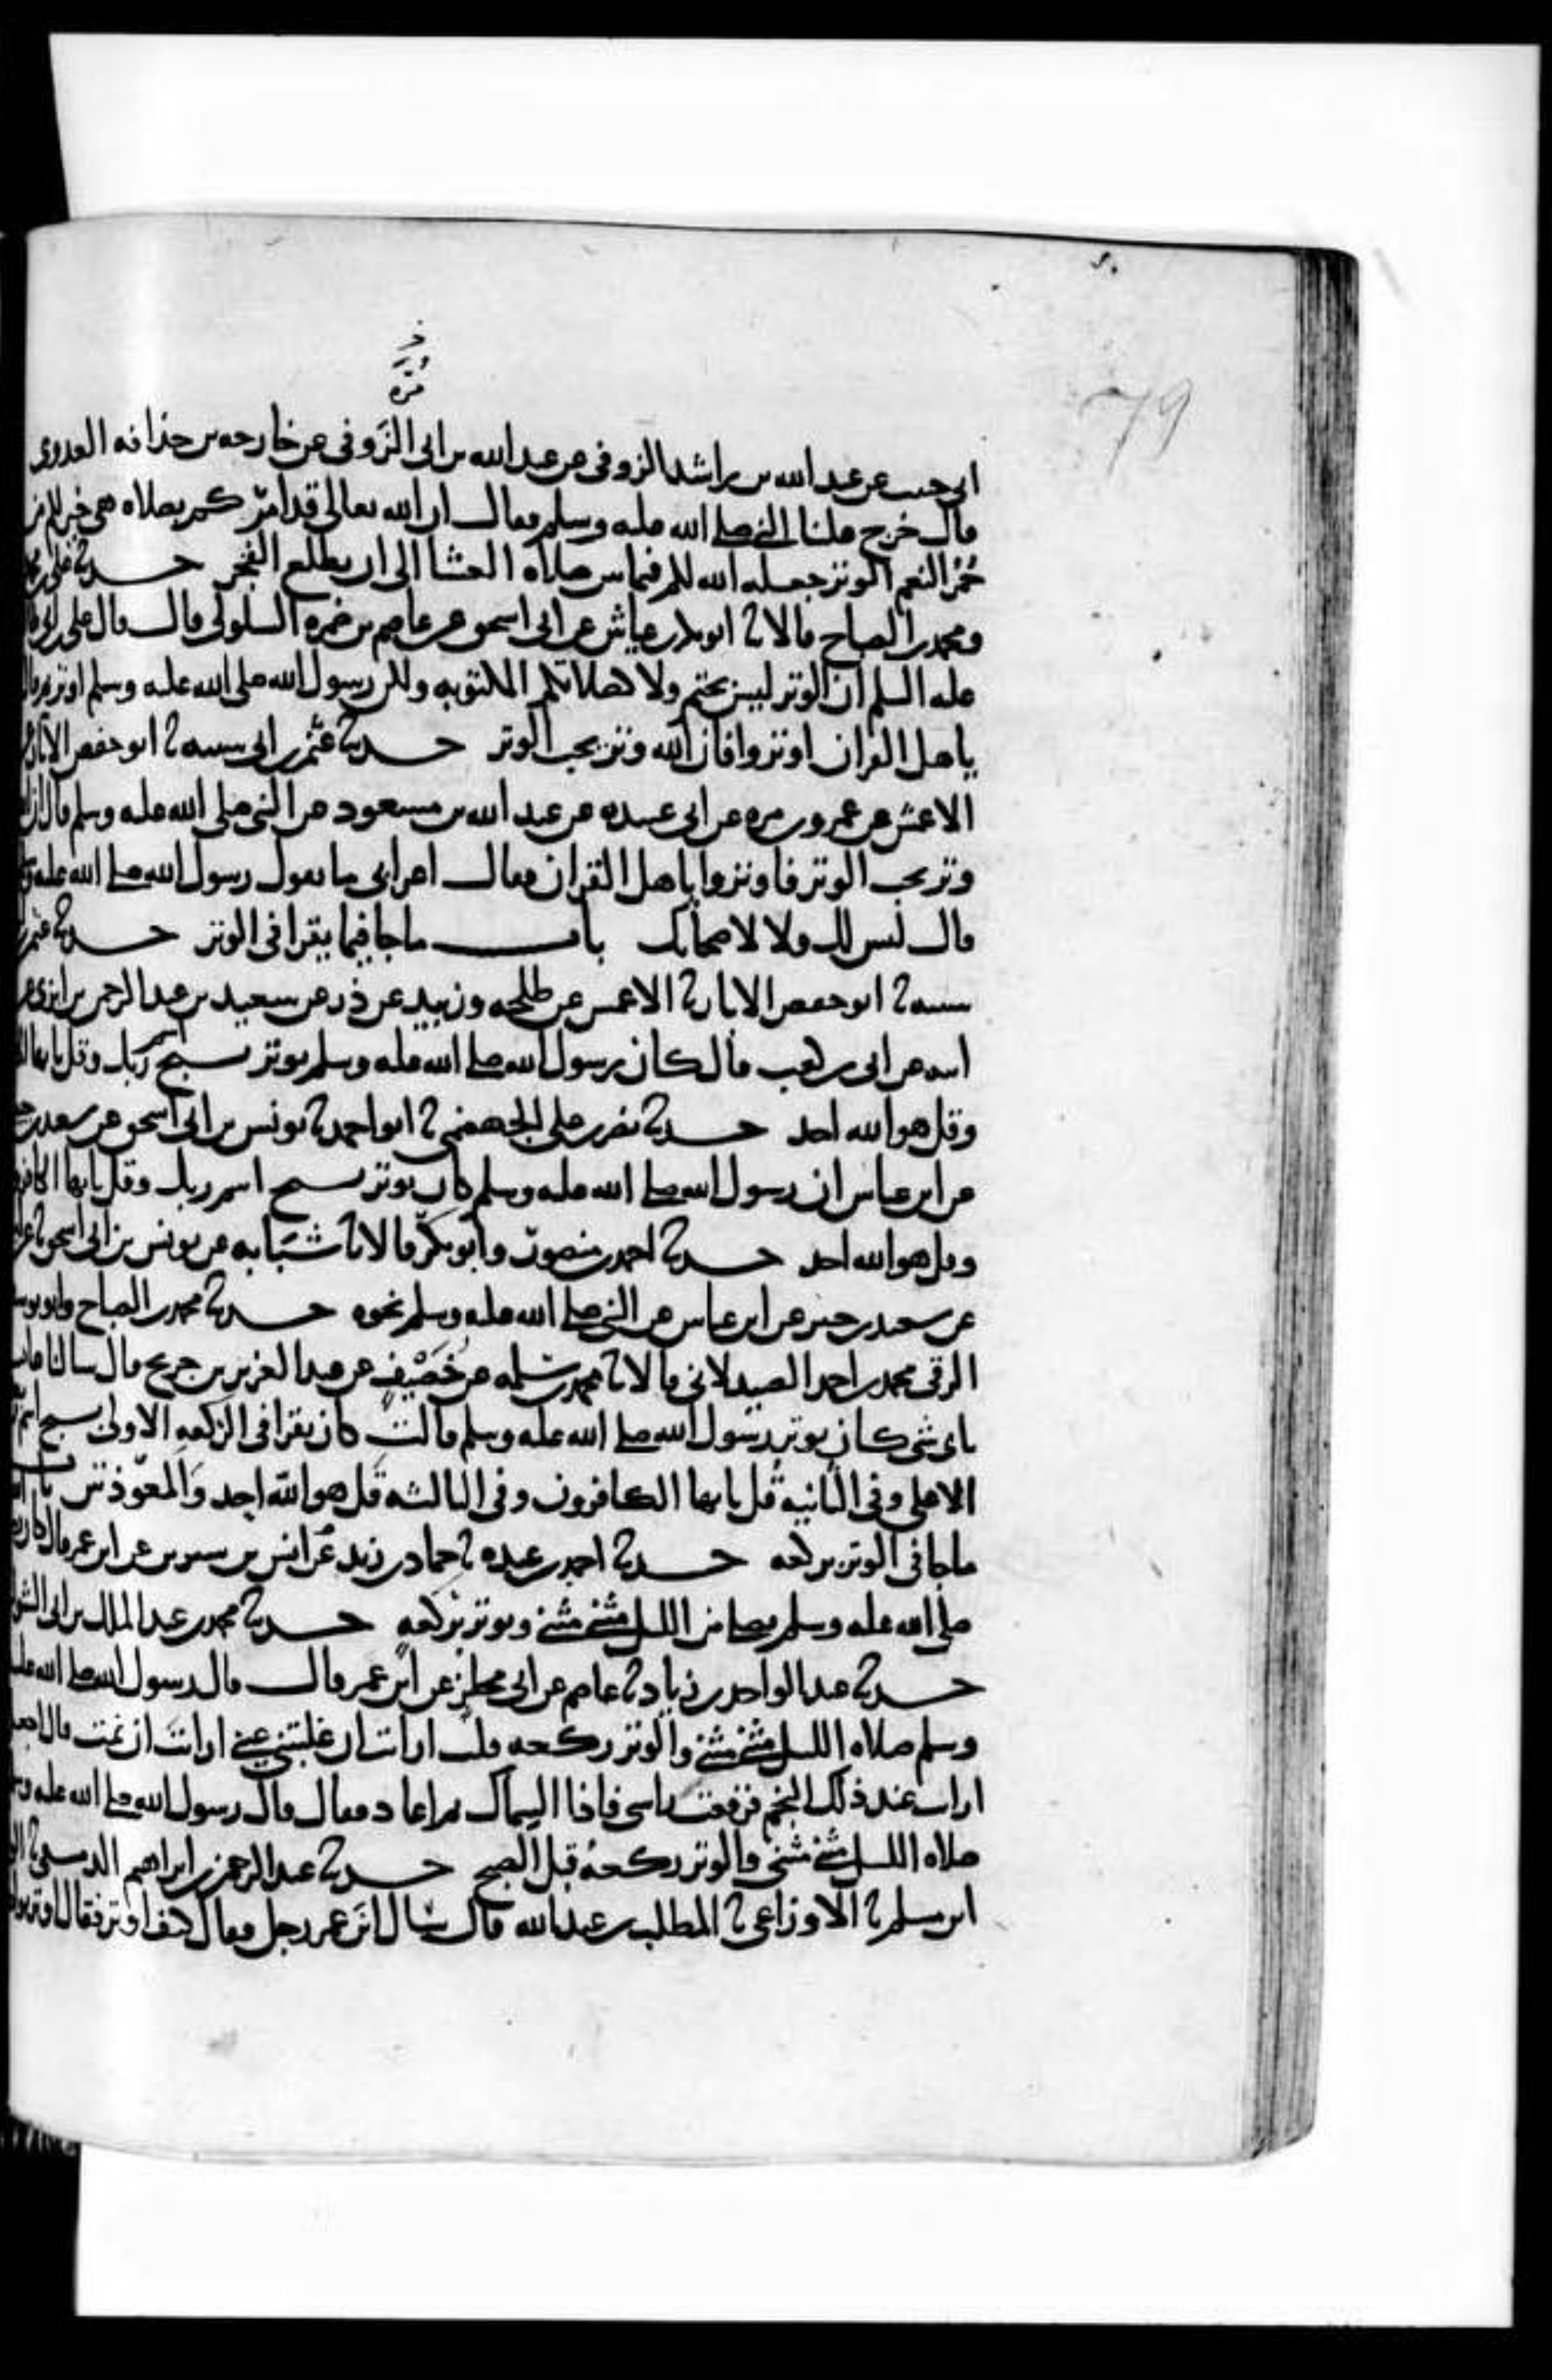 79
مرة
ابى حبيب عن عبد الله بن راشد الزوفى عن عبد الله بن ابى الزوفى عن خارجه بن حذافه العدوى
قال خرج علينا النبى صلى الله عليه وسلم فقال ان الله تعالى قد امدكم بصلاه هى خير لكم من
حمر النعم الوتر جعله الله لكم فيما بين صلاه العشا الى ان يطلع الفجر حدثنا على بن محمد
ومحمد بن الصباح قالا نا ابو بكر بن عياش عن ابى اسحق عن عاصم بن ضمره السلولى قال قال على بن ابى
عليه السلم ان الوتر ليس بحتم ولا كصلاتكم المكتوبه ولكن رسول الله صلى الله عليه وسلم اوتر ثم قال
ياهل القران اوتروا فان الله وتر يحب الوتر حدثنا عثمن بن ابى شيبه نا ابو حفص الابار عن
الاعمش عن عمرو بن مره عن ابى عبيده عن عبد الله بن مسعود عن النبى صلى الله عليه وسلم قال ان الله
وتر يحب الوتر فاوتروا ياهل القران فقال اعرابى ما يقول رسول الله صلى الله عليه وسلم
قال ليس لك ولا لاصحابك باب ماجا فيما يقرا فى الوتر حدثنا عثمن بن
شيبه نا ابو حفص الابار نا الاعمش عن طلحه وزبيد عن ذر عن سعيد بن عبد الرحمن بن ابزى عن
ابيه عن ابى بن كعب قال كان رسول الله صلى الله عليه وسلم يوتر بسبح اسم ربك وقل يايها
وقل هو الله احد حدثنا نصر بن على الجهضمى نا ابو احمد نا يونس بن ابى اسحق عن سعيد بن
عن ابن عباس ان رسول الله صلى الله عليه وسلم كان يوتر بسبح اسم ربك وقل يايها الكافرون
وقل هو الله احد حدثنا احمد بن منصور وابو بكر قالا نا شبابه عن يونس بن ابى اسحق
عن سعيد بن جبير عن ابن عباس عن النبى صلى الله عليه وسلم نحوه حدثنا محمد بن الصباح وابو يوسف
الرقى محمد بن احمد الصيدلانى قالا نا محمد بن سلمه عن خصيف عن عبد العزيز بن جريج قال سالنا عايشه
باى شى كان يوتر رسول الله صلى الله عليه وسلم قالت كان يقرا فى الركعه الاولى بسبح اسم ربك
الاعلى وفى الثانيه قل يايها الكافرون وفى الثالثه قل هو الله احد والمعوذتين باب
ماجا فى الوتر بركعه حدثنا احمد بن عبده نا حماد بن زيد عن انس بن سيرين عن ابن عمر قال كان
صلى الله عليه وسلم يصلى من الليل مثنى مثنى ويوتر بركعه حدثنا محمد بن عبد الملك بن ابى الشوارب
حدثنا عبد الواحد بن زياد نا عاصم عن ابى مجلز عن ابن عمر قال قال رسول الله صلى الله عليه
وسلم صلاه الليل مثنى مثنى والوتر ركعه قلت ارايت ان غلبتنى عينى ارايت ان نمت قال اجعل
ارايت عند ذلك النجم فرفعت راسى فاذا السماك ثم اعاد فقال قال رسول الله صلى الله عليه وسلم
صلاه الليل مثنى مثنى والوتر ركعه قبل الصبح حدثنا عبد الرحمن بن ابراهيم الدمشقى نا
ابن مسلم نا الاوزاعى نا المطلب بن عبد الله قال سال ابن عمر رجل فقال كيف اوتر فقال اوتر بواحدة